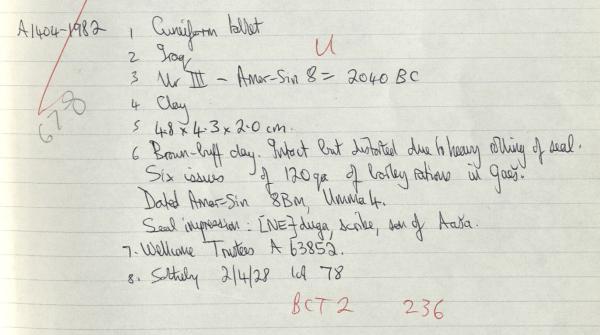 A1404-1982 1 Cuneiform tablet
U
2 Iraq
3 Ur III – Amar-Sin 8 = 2040 BC
678
4 Clay
5 4.8 x 4.3 x 2.0 cm.
6 Brown-buff clay. Intact but distorted due to heavy rolling of seal.
Six issues of 120 qa of barley rations in Gaeš.
Dated Amar-Sin 8Bm, Umma 4.
Seal impression: [NE]duga, scribe, son of
7. Wellcome Trustees A 63852.
8. Sotheby 2/4/28 lot 78
BCT 2 236